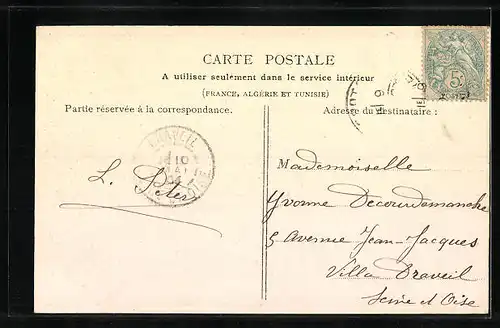 CARTE POSTALE
A utiliser seulement dans le service intérieur
(FRANCE, ALGÉRIE ET TUNISIE)
Partie réservée à la correspondance.
Adresse du destinataire :
Mademoiselle
Yvonne Decourdemanche
5 Avenue Jean-Jacques
Villa Draveil
Seine et Oise
L. Peters
DRAVEIL
10
MAI
5c